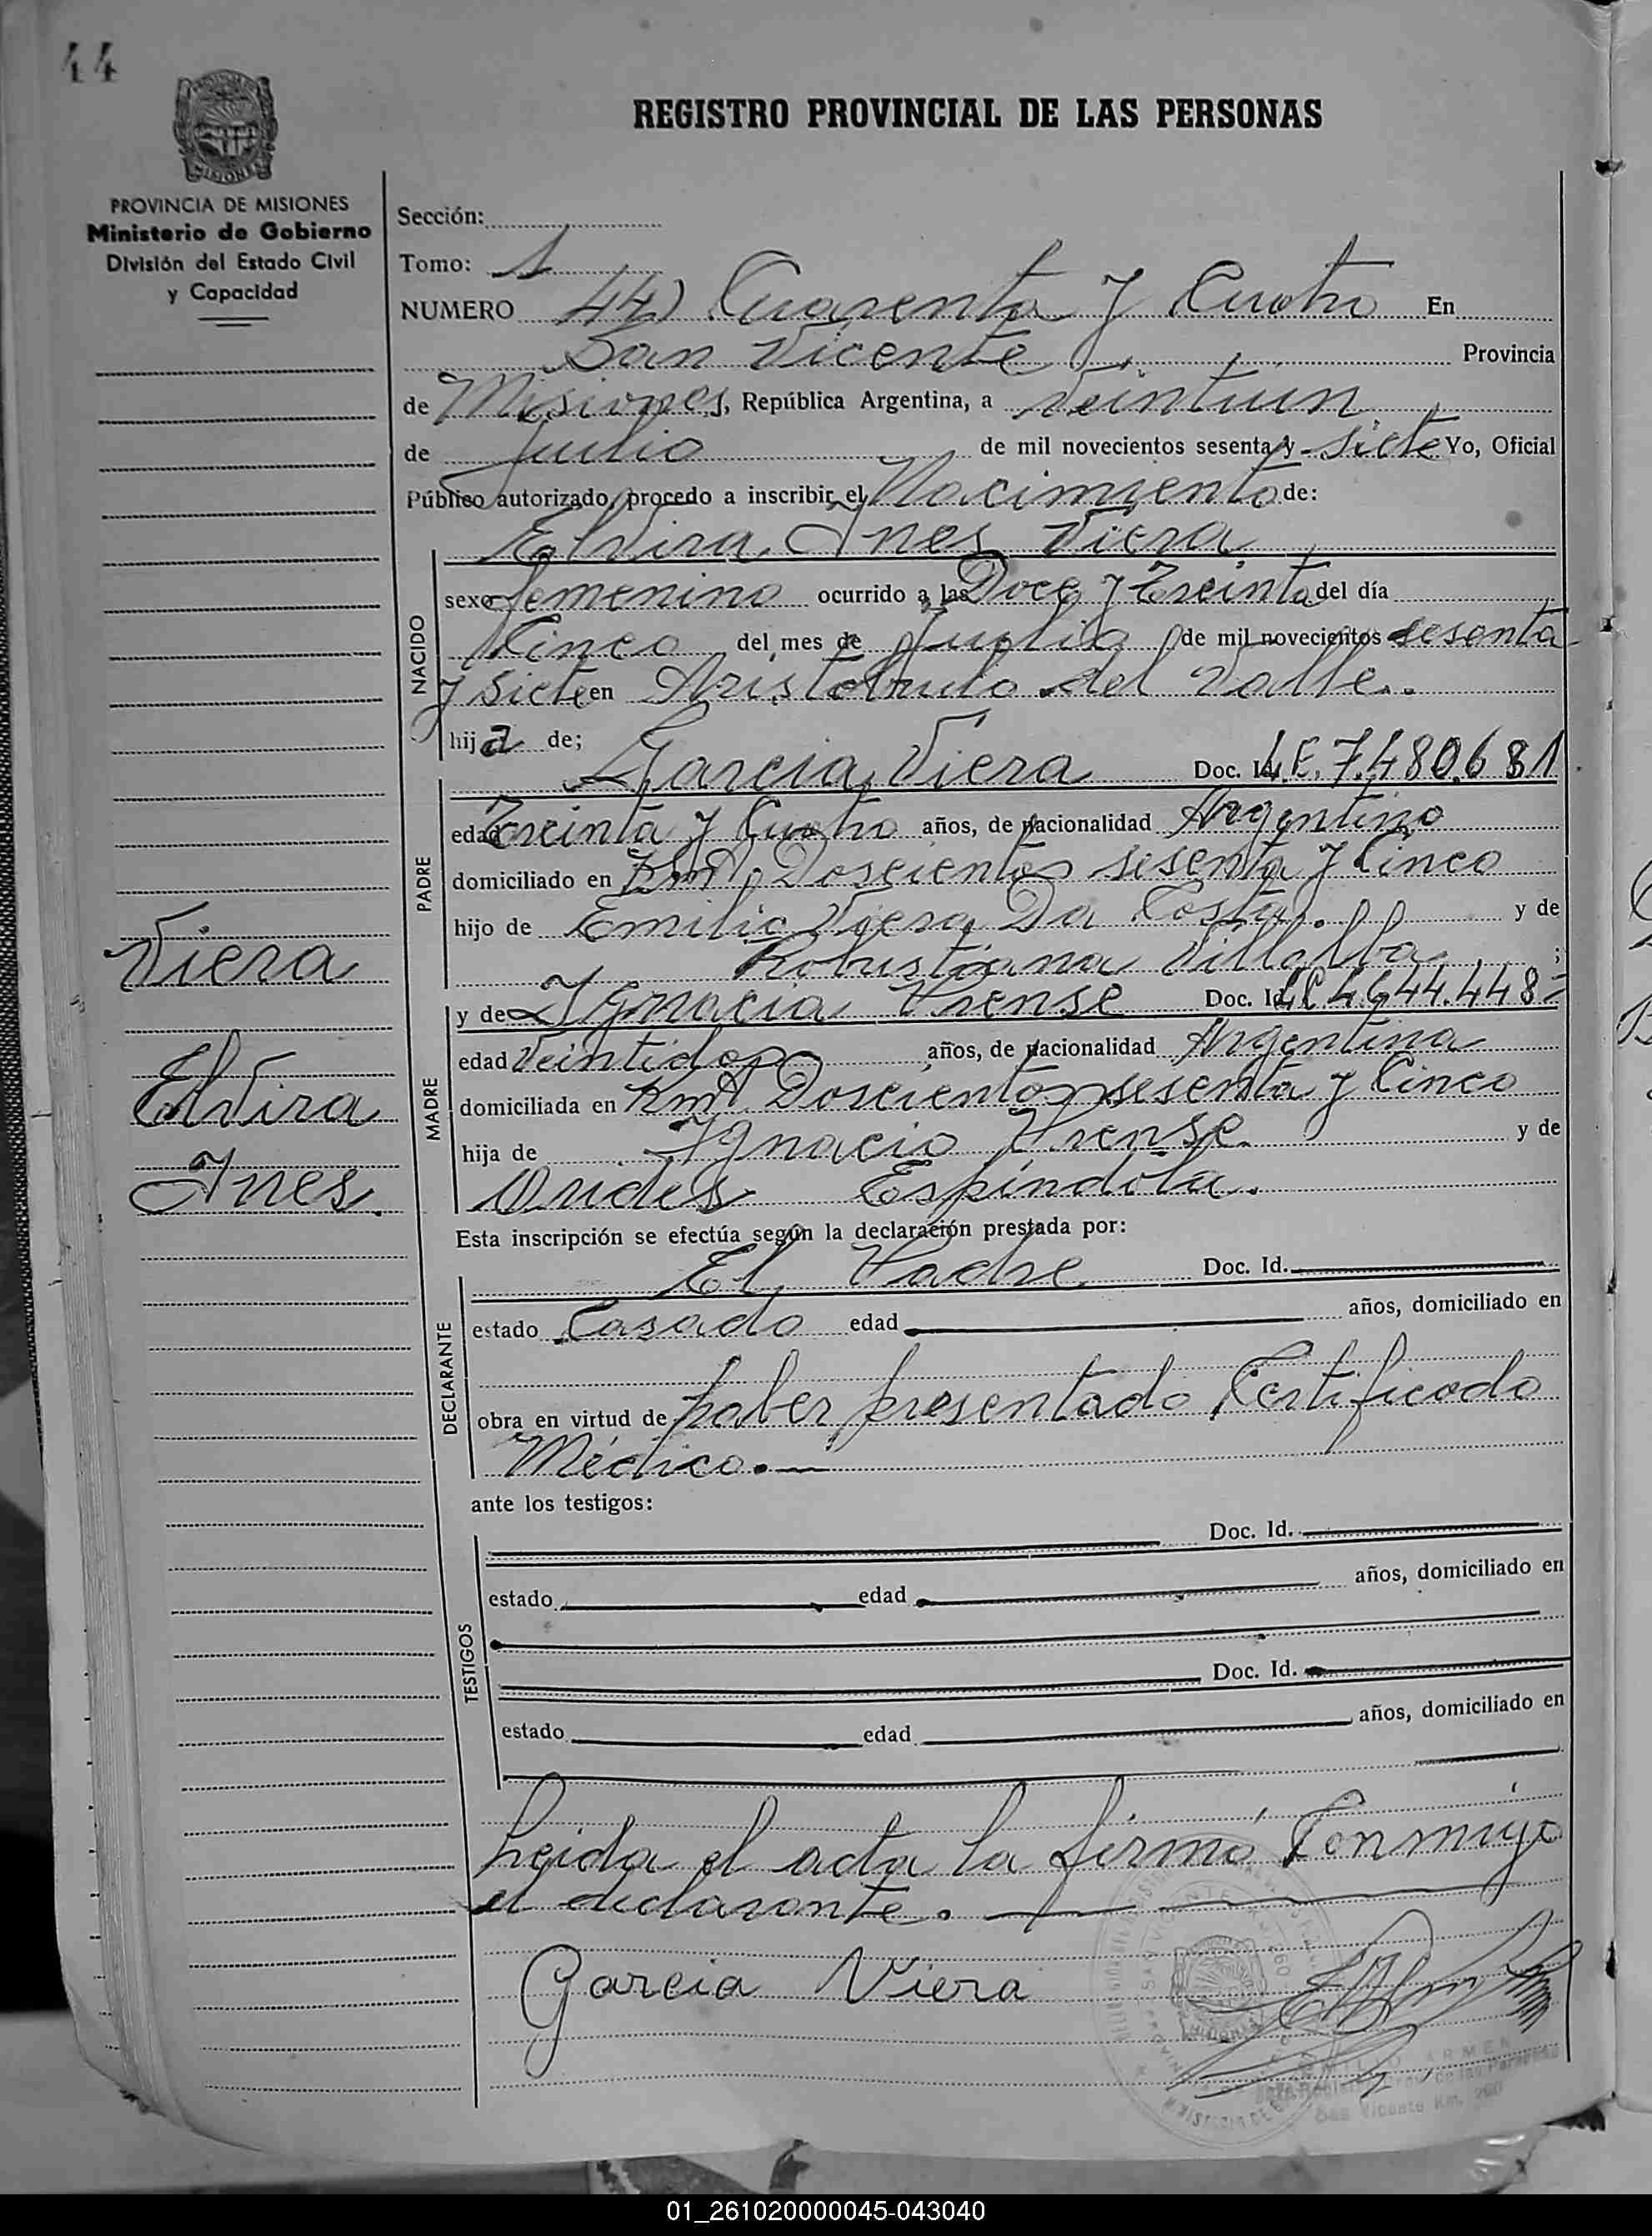 44
REGISTRO PROVINCIAL DE LAS PERSONAS
MISIONES
PROVINCIA DE MISIONES
Ministerio de Gobierno
División del Estado Civil
y Capacidad
Sección:
Tomo: 1
NUMERO 44) Cuarenta y Cuatro En
San Vicente Provincia
de Misiones, República Argentina, a Veintiun
de Julio de mil novecientos sesenta y siete Yo, Oficial
Público autorizado, procedo a inscribir el Nacimiento de:
Elvira Ines Viera
NACIDO
sexo femenino ocurrido a las Doce y Treinta del día
Cinco del mes de Julio de mil novecientos sesenta
y siete en Aristobulo del Valle.
hija de;
Garcia Viera Doc. Id. L.E. 7.480.681
PADRE
edad Treinta y Cuatro años, de nacionalidad Argentino
domiciliado en Km. Doscientos sesenta y Cinco
hijo de Emilio Viera Da Costa. y de
Robustiana Villalba ;
y de Ignacia Prense Doc. Id. LC 4.644.448
MADRE
edad Veintidos años, de nacionalidad Argentina
domiciliada en Km. Doscientos sesenta y Cinco
hija de Ignacio Prense y de
Espindola.
Esta inscripción se efectúa según la declaración prestada por:
El Padre Doc. Id.
DECLARANTE
estado Casado edad años, domiciliado en
obra en virtud de haber presentado Certificado
Médico.
ante los testigos:
Doc. Id.
TESTIGOS
estado edad años, domiciliado en
Doc. Id.
estado edad años, domiciliado en
Leida el acta la firmó Conmigo
el declarante.
Garcia Viera
San Vicente Km. 260
Viera
Elvira
Ines.
01_261020000045-043040